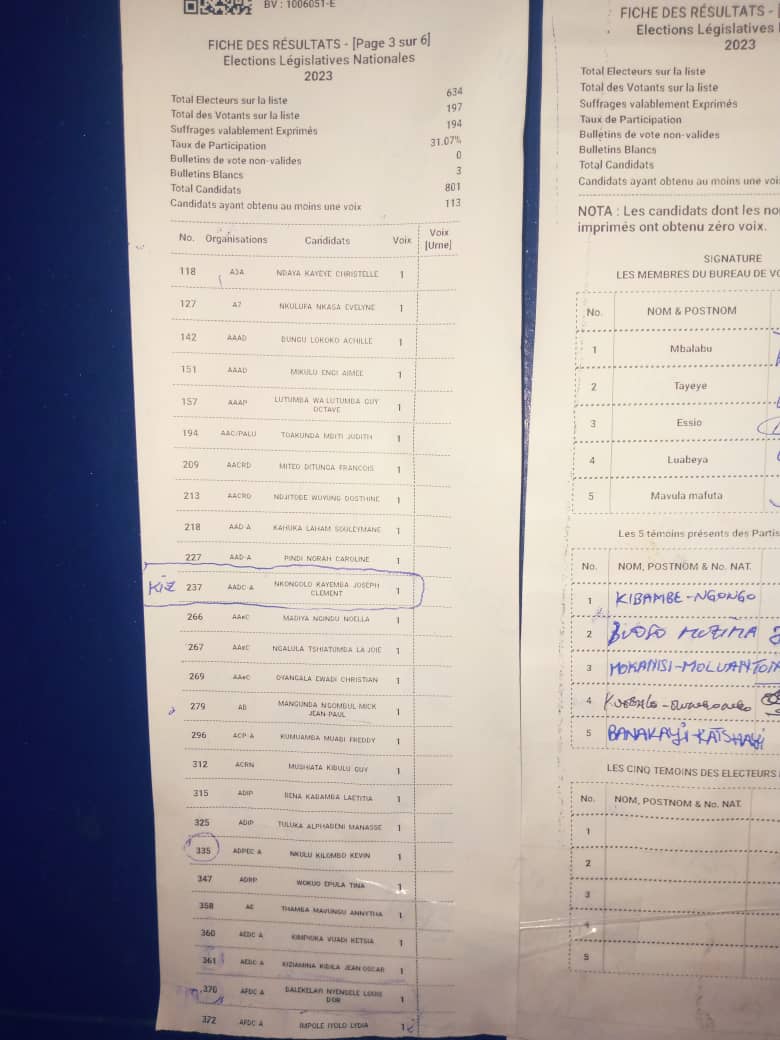 BV : 1006051-E
FICHE DES RÉSULTATS - [Page 3 sur 6]
Elections Législatives Nationales
2023
Total Electeurs sur la liste 634
Total des Votants sur la liste 197
Suffrages valablement Exprimés 194
Taux de Participation 31.07%
Bulletins de vote non-valides 0
Bulletins Blancs 3
Total Candidats 801
Candidats ayant obtenu au moins une voix 113
No. Organisations Candidats Voix Voix [Urne]
118 A3A NDAYA KAYEYE CHRISTELLE 1
127 A7 NKULUFA NKASA EVELYNE 1
142 AAAD BUNGU LOKOKO ACHILLE 1
151 AAAD MIKULU ENGI AIMEE 1
157 AAAP LUTUMBA WA LUTUMBA GUY
OCTAVE 1
194 AAC/PALU TOAKUNDA MBITI JUDITH 1
209 AACRD MITEO DITUNGA FRANCOIS 1
213 AACRD NDJITODE WUYUNG DOSTHINE 1
218 AAD-A KAHUKA LAHAM SOULEYMANE 1
227 AAD-A PINDI NORAH CAROLINE 1
Kiz 237 AADC-A NKONGOLO KAYEMBA JOSEPH
CLEMENT 1
266 AAeC MADIYA NGINDU NOELLA 1
267 AAeC NGALULA TSHIATUMBA LA JOIE 1
269 AAeC OYANGALA EWADI CHRISTIAN 1
279 AB MANGUNDA NGOMBUL MICK
JEAN-PAUL 1
296 ACP-A KUMUAMBA MUADI FREDDY 1
312 ACRN MUSHIATA KIBULU GUY 1
315 ADIP BENA KABAMBA LAETITIA 1
325 ADIP TULUKA ALPHABENI MANASSE 1
335 ADPEC A NKULU KILOMBO KEVIN 1
347 ADRP WOKUO EPULA TINA 1
358 AE THAMBA MAVUNGU ANNYTHA 1
360 AEDC A KIMPIUKA VUADI KETSIA 1
361 AEDC A KIZIAMINA KIBILA JEAN OSCAR 1
370 AFDC A BALEKELAYI NYENGELE LOUIS
DOR 1
372 AFDC A IMPOLE IYOLO LYDIA 1
FICHE DES RÉSULTATS -
Elections Législatives
2023
Total Electeurs sur la liste
Total des Votants sur la liste
Suffrages valablement Exprimés
Taux de Participation
Bulletins de vote non-valides
Bulletins Blancs
Total Candidats
Candidats ayant obtenu au moins une
NOTA : Les candidats dont les
imprimés ont obtenu zéro voix.
SIGNATURE
LES MEMBRES DU BUREAU DE
No. NOM & POSTNOM
1 Mbalabu
2 Tayeye
3 Essio
4 Luabeya
5 Mavula mafuta
Les 5 témoins présents des Partis
No. NOM, POSTNOM & No. NAT.
1 KIBAMBE-NGONGO
2
3
4
5 BANAKAYI-KATSHAYI
LES CINQ TEMOINS DES ELECTEURS
No. NOM, POSTNOM & No. NAT.
1
2
3
4
5